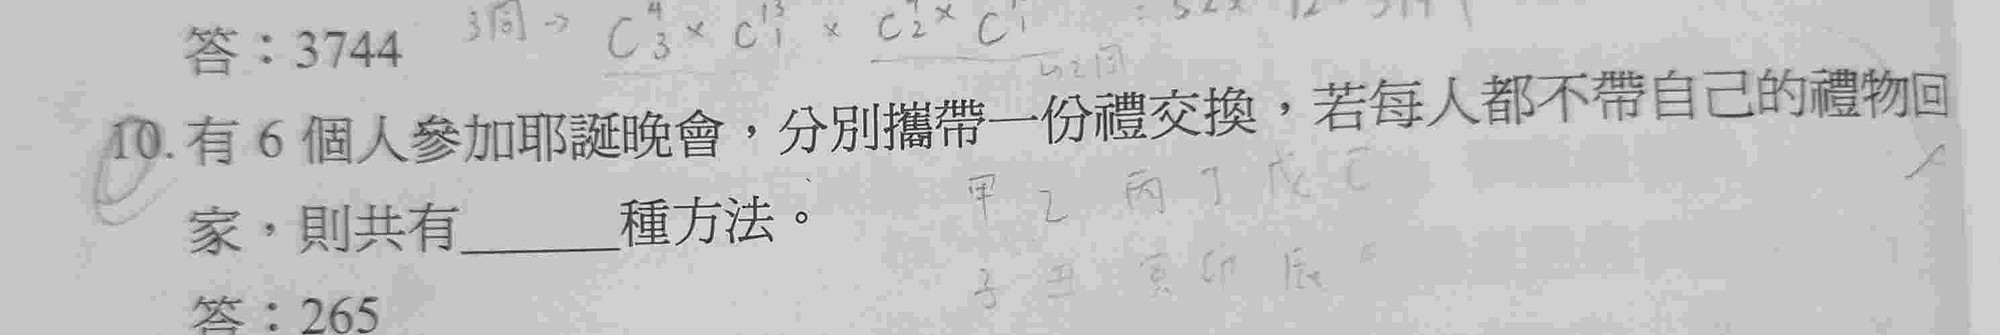 答：3744 3同→ C 4 3 × C 13 1 × C 4 2 × C 1
↳2同
10. 有 6 個人參加耶誕晚會，分別攜帶一份禮交換，若每人都不帶自己的禮物回
甲 乙 丙 丁 戊 己
家，則共有______種方法。
子 丑 寅 卯 辰
答：265